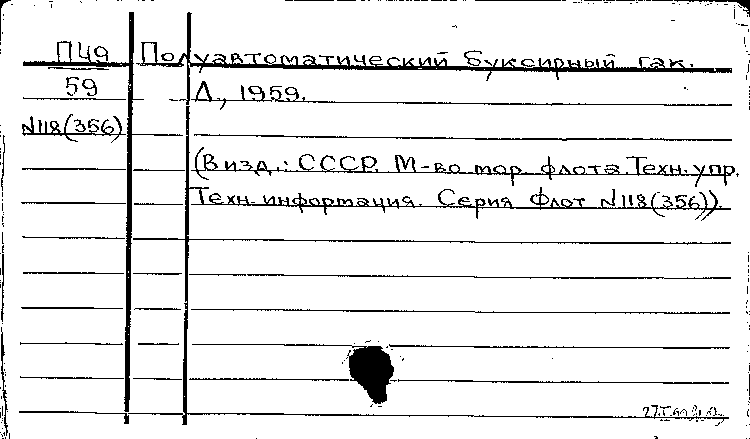 П49 Полуавтоматический буксирный гак.
59 Л., 1959.
N118(356)
(В изд.: СССР. М-во мор. флота. Техн. упр.
Техн. информация. Серия Флот N118(356)).